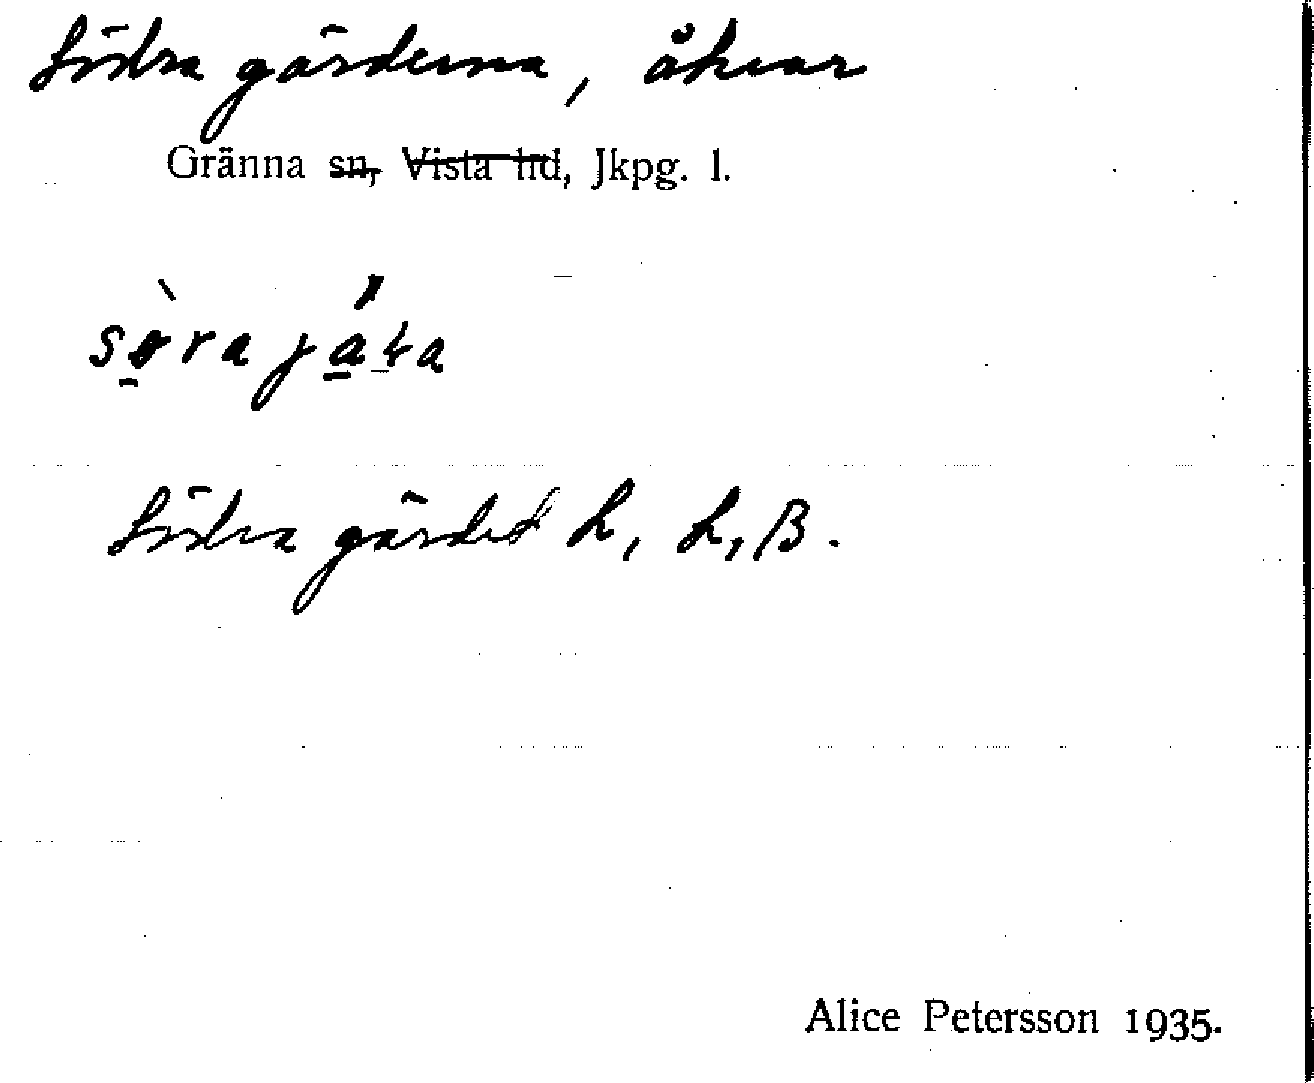 Södra gärderna, åkrar
Gränna sn, Vista hd, Jkpg. l.
Södra gärdet L, L, B.
Alice Petersson 1935.